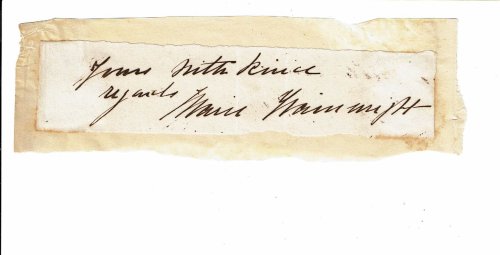 Yours with kind
regards
Marie Wainwright